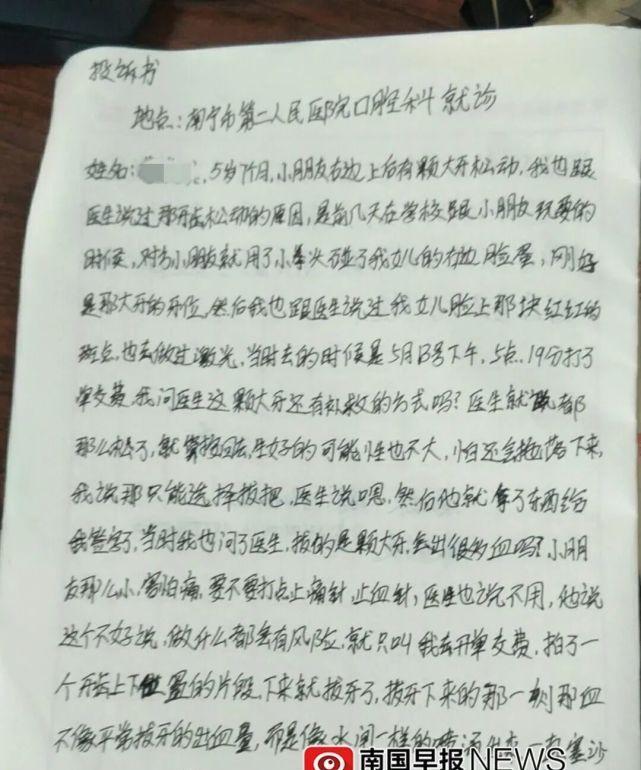 投诉书
地点：南宁市第二人民医院口腔科就诊
姓名： ，5岁7个月，小朋友右边上后有颗大牙松动，我也跟
医生说过那牙齿松动的原因，是前几天在学校跟小朋友玩耍的
时候，对方小朋友就用了小拳头碰了我女儿的右边脸蛋，刚好
是那大牙的牙位，然后我也跟医生说过我女儿脸上那块红红的
斑点，也去做过激光，当时去的时候是5月13号下午，5点.19分打了
单交费，我问医生这颗大牙还有补救的方式吗？医生就说都
那么松了，就算按回去，生好的可能性也不大，怕还会掉落下来，
我说那只能选择拔把，医生说嗯，然后他就拿了东西给
我签字，当时我也问了医生，拔的是颗大牙，会出很多血吗？小朋
友那么小，害怕痛，要不要打点止痛针，止血针，医生也说不用，他说
这个不好说，做什么都会有风险，就只叫我去开单交费，拍了一
个牙齿上下位置的片段，下来就拔牙了，拔牙下来的那一刻那血
不像平常拔牙的出血量，而是像水闸一样的 塞沙
南国早报NEWS